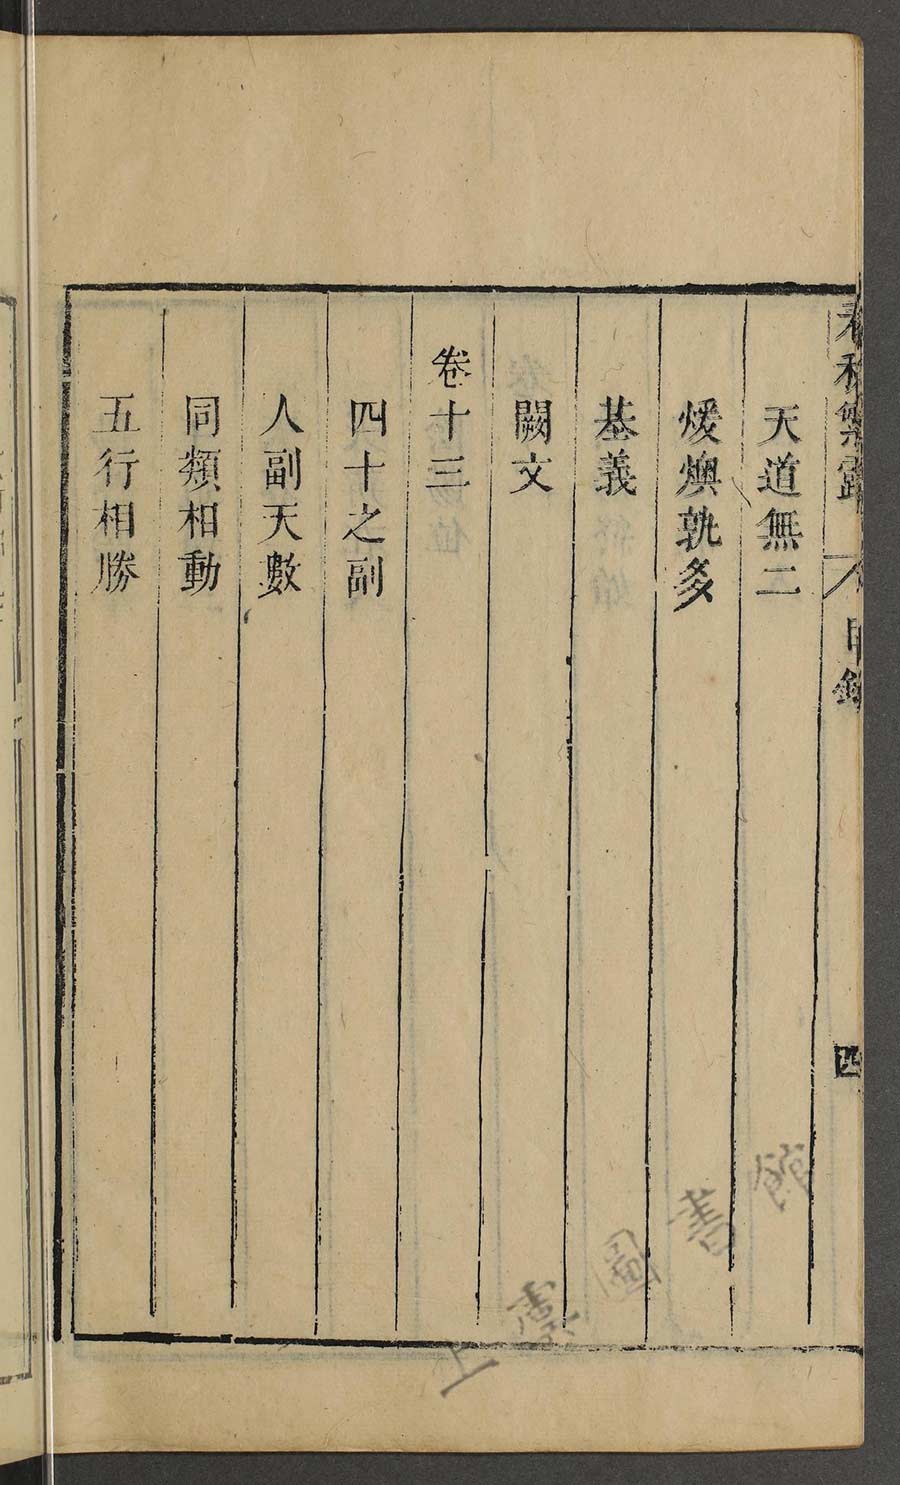 春秋繁露 目錄 四
天道無二
煖燠孰多
基義
闕文
卷十三
四十之副
人副天數
同類相動
五行相勝
上虞圖書館